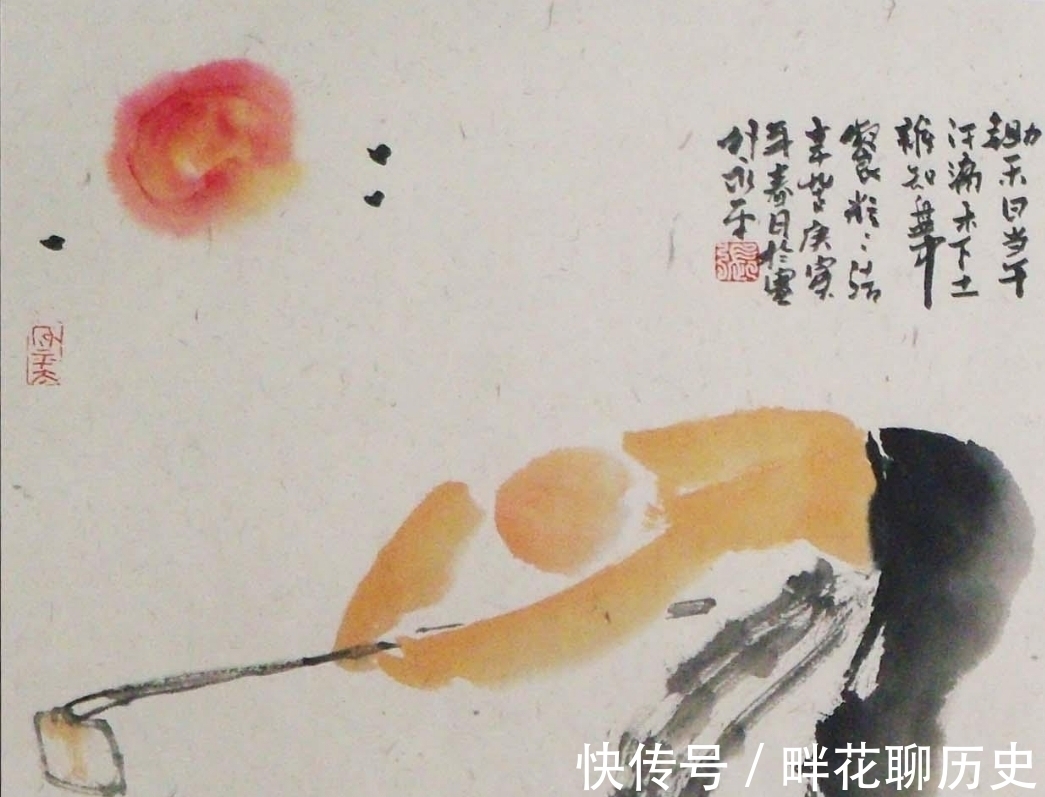 锄禾日当午
汗滴禾下土
谁知盘中
餐粒〻皆
辛苦庚寅
年春日於
快传号 / 畔花聊历史